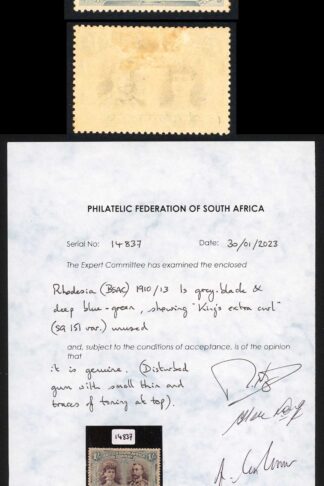 PHILATELIC FEDERATION OF SOUTH AFRICA
Serial No: 14837 Date: 30/01/2023
The Expert Committee has examined the enclosed
Rhodesia (BSAC) 1910/13 1s grey-black &
deep blue-green, showing "King's extra curl"
(SG 151 var.) unused
and, subject to the conditions of acceptance, is of the opinion
that
it is genuine. (Disturbed
gum with small thin and
traces of toning at top).
14837